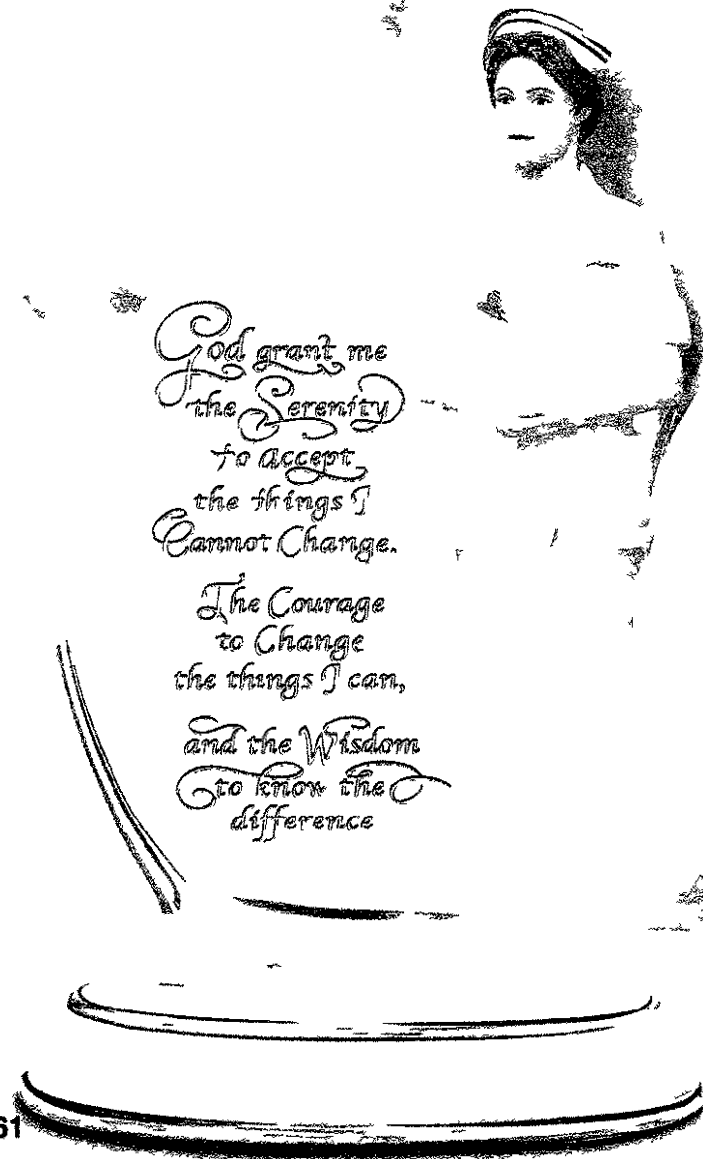 God grant me
the Serenity
to accept
the things I
Cannot Change.
The Courage
to Change
the things I can,
and the Wisdom
to know the
difference
61